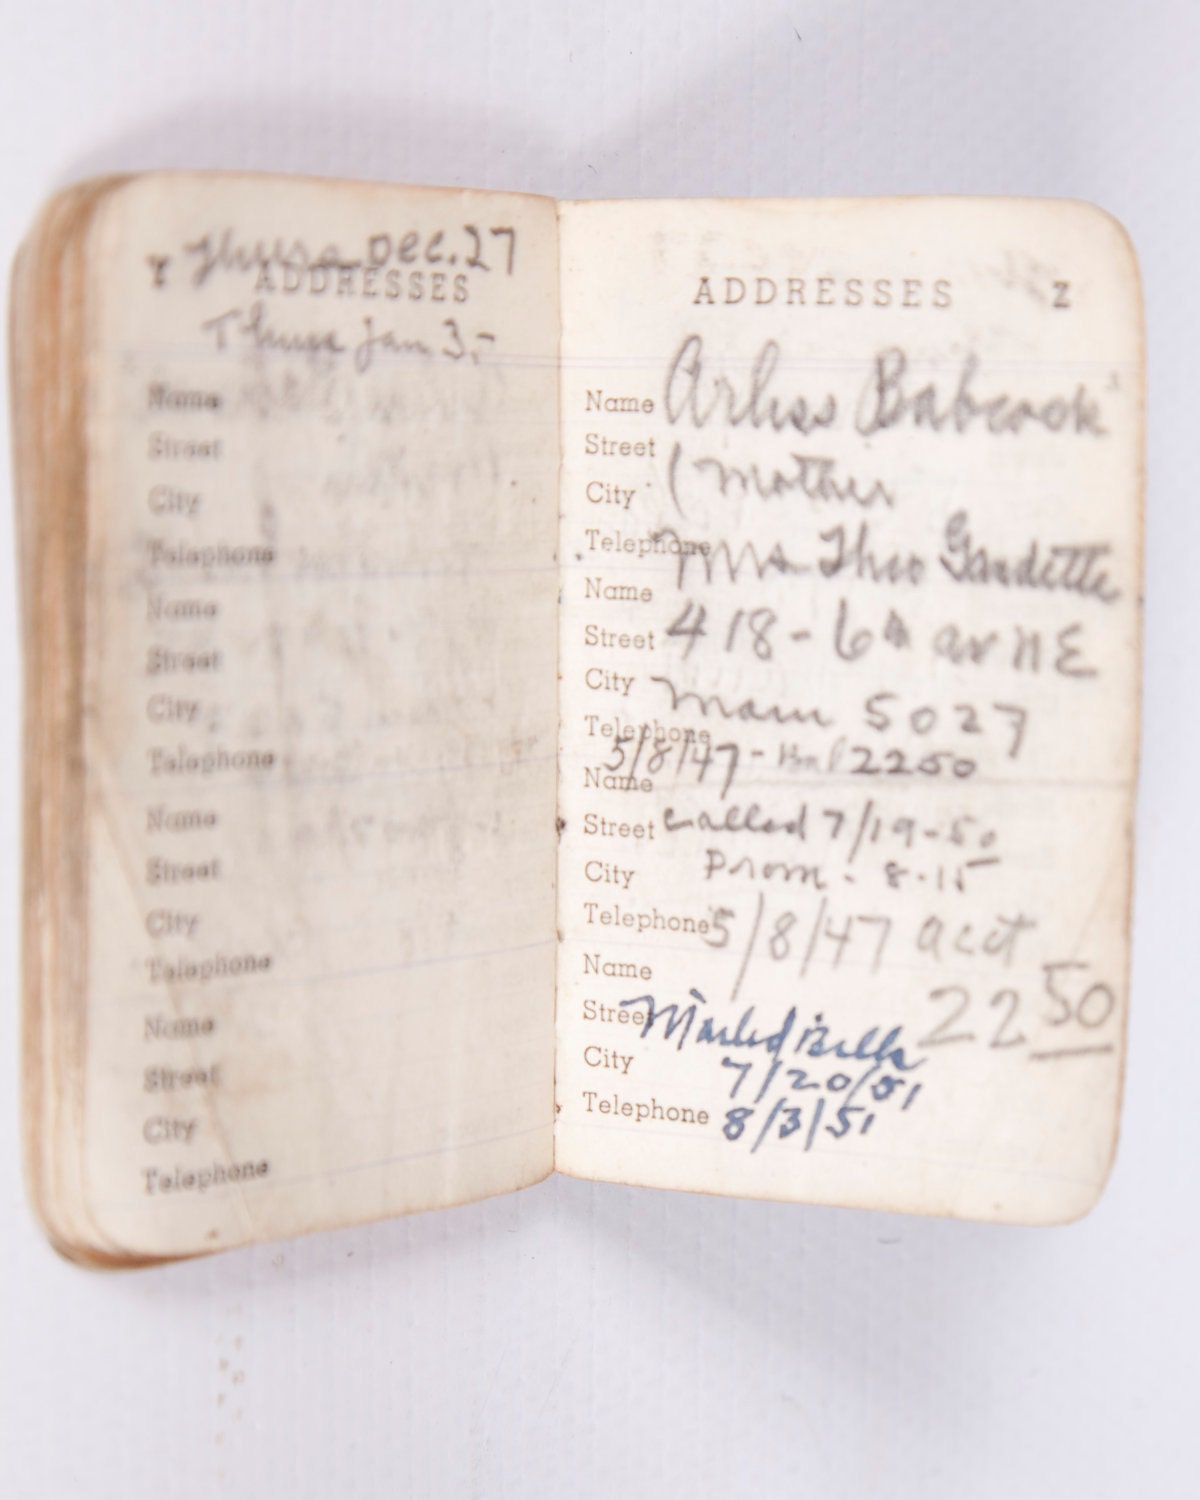 Thurs Dec. 27
Y ADDRESSES
Thurs Jan 3
Name
Street
City
Telephone
Name
Street
City
Telephone
Name
Street
City
Telephone
Name
Street
City
Telephone
ADDRESSES Z
Name Arliss Babcock
Street
City ( Mother
Telephone Mrs Theo Gaudette
Name
Street 418 - 6th av NE
City Main 5027
Telephone
5/8/47 - Bal 2250
Name
Street called 7/19-50
City Prom. 8-15
Telephone 5/8/47 acct
Name
22 50
Street Mailed Bills
City 7/20/51
Telephone 8/3/51